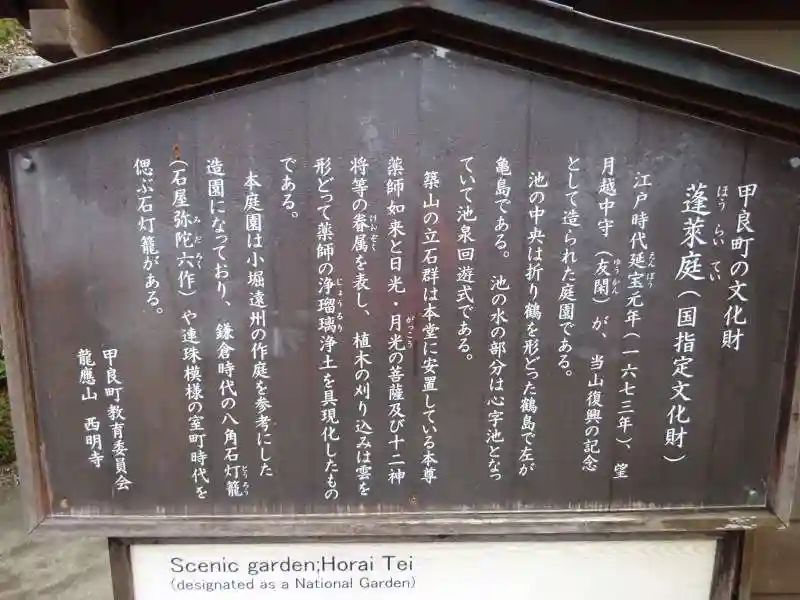 甲良町の文化財
蓬萊庭（国指定文化財）
ほうらいてい
江戸時代延宝元年（一六七三年）、望
えんぽう
月越中守（友閑）が、当山復興の記念
ゆうかん
として造られた庭園である。
池の中央は折り鶴を形どった鶴島で左が
亀島である。池の水の部分は心字池となっ
ていて池泉回遊式である。
築山の立石群は本堂に安置している本尊
薬師如来と日光・月光の菩薩及び十二神
がっこう
将等の眷属を表し、植木の刈り込みは雲を
けんぞく
形どって薬師の浄瑠璃浄土を具現化したもの
じょうるり
である。
本庭園は小堀遠州の作庭を参考にした
造園になっており、鎌倉時代の八角石灯籠
どうろう
（石屋弥陀六作）や連珠模様の室町時代を
みだろく
偲ぶ石灯籠がある。
甲良町教育委員会
龍應山 西明寺
Scenic garden;Horai Tei
(designated as a National Garden)